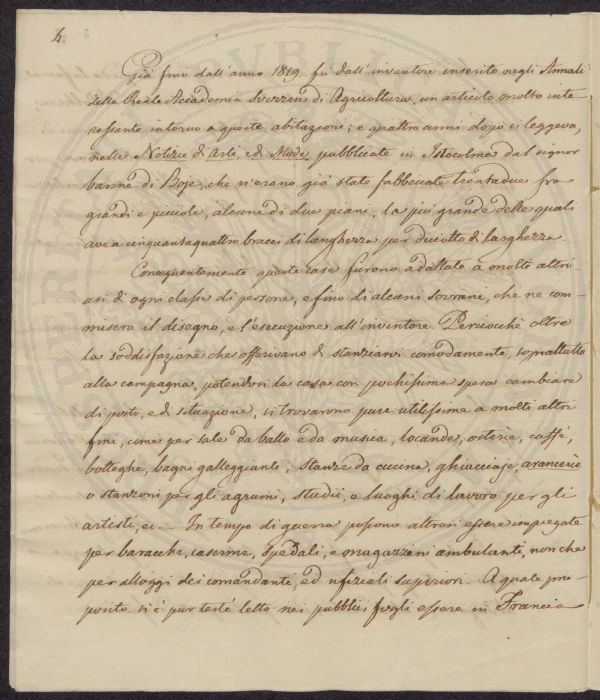 4.
Già fino dall'anno 1819. fù dall'inventore inserito negli Annali
della Reale Accademia Svezzese di Agricoltura, un articolo molto inte-
ressante intorno a queste abitazioni; e quattro anni dopo si leggeva,
nelle Notizie di Arti, e di Mode pubblicate in Istocolma dal signor
barone di Boje, che n'erano già state fabbricate trentadue fra
grandi e piccole, alcune di due piani, la più grande delle quali
avea cinquantaquattro bracci di lunghezza per diciotto di larghezza.
Conseguentemente queste case furono adattate a molti altri
usi di ogni classe di persone, e fino di alcuni sovrani, che ne com-
misero il disegno, e l'esecuzione all'inventore. Perciocchè oltre
la soddisfazione che offerivano di stanziarvi comodamente, soprattutto
alla campagna, potendosi la casa con pochissima spesa cambiare
di posto, e di situazione, si trovarono pure utilissime a molti altri
fini, come per sale da ballo e da musica, locande, osterie, caffè,
botteghe, bagni galleggianti, stanze da cucina, ghiacciaje, arancerie
o stanzoni per gli agrumi, studii, o luoghi di lavoro per gli
artisti, ec. — In tempo di guerra possono altresì essere impiegate
per baracche, caserme, spedali, e magazzini ambulanti, non che
per alloggi dei comandanti, ed ufiziali superiori. A quale pro-
posito si è pur testè letto nei pubblici fogli essere in Francia